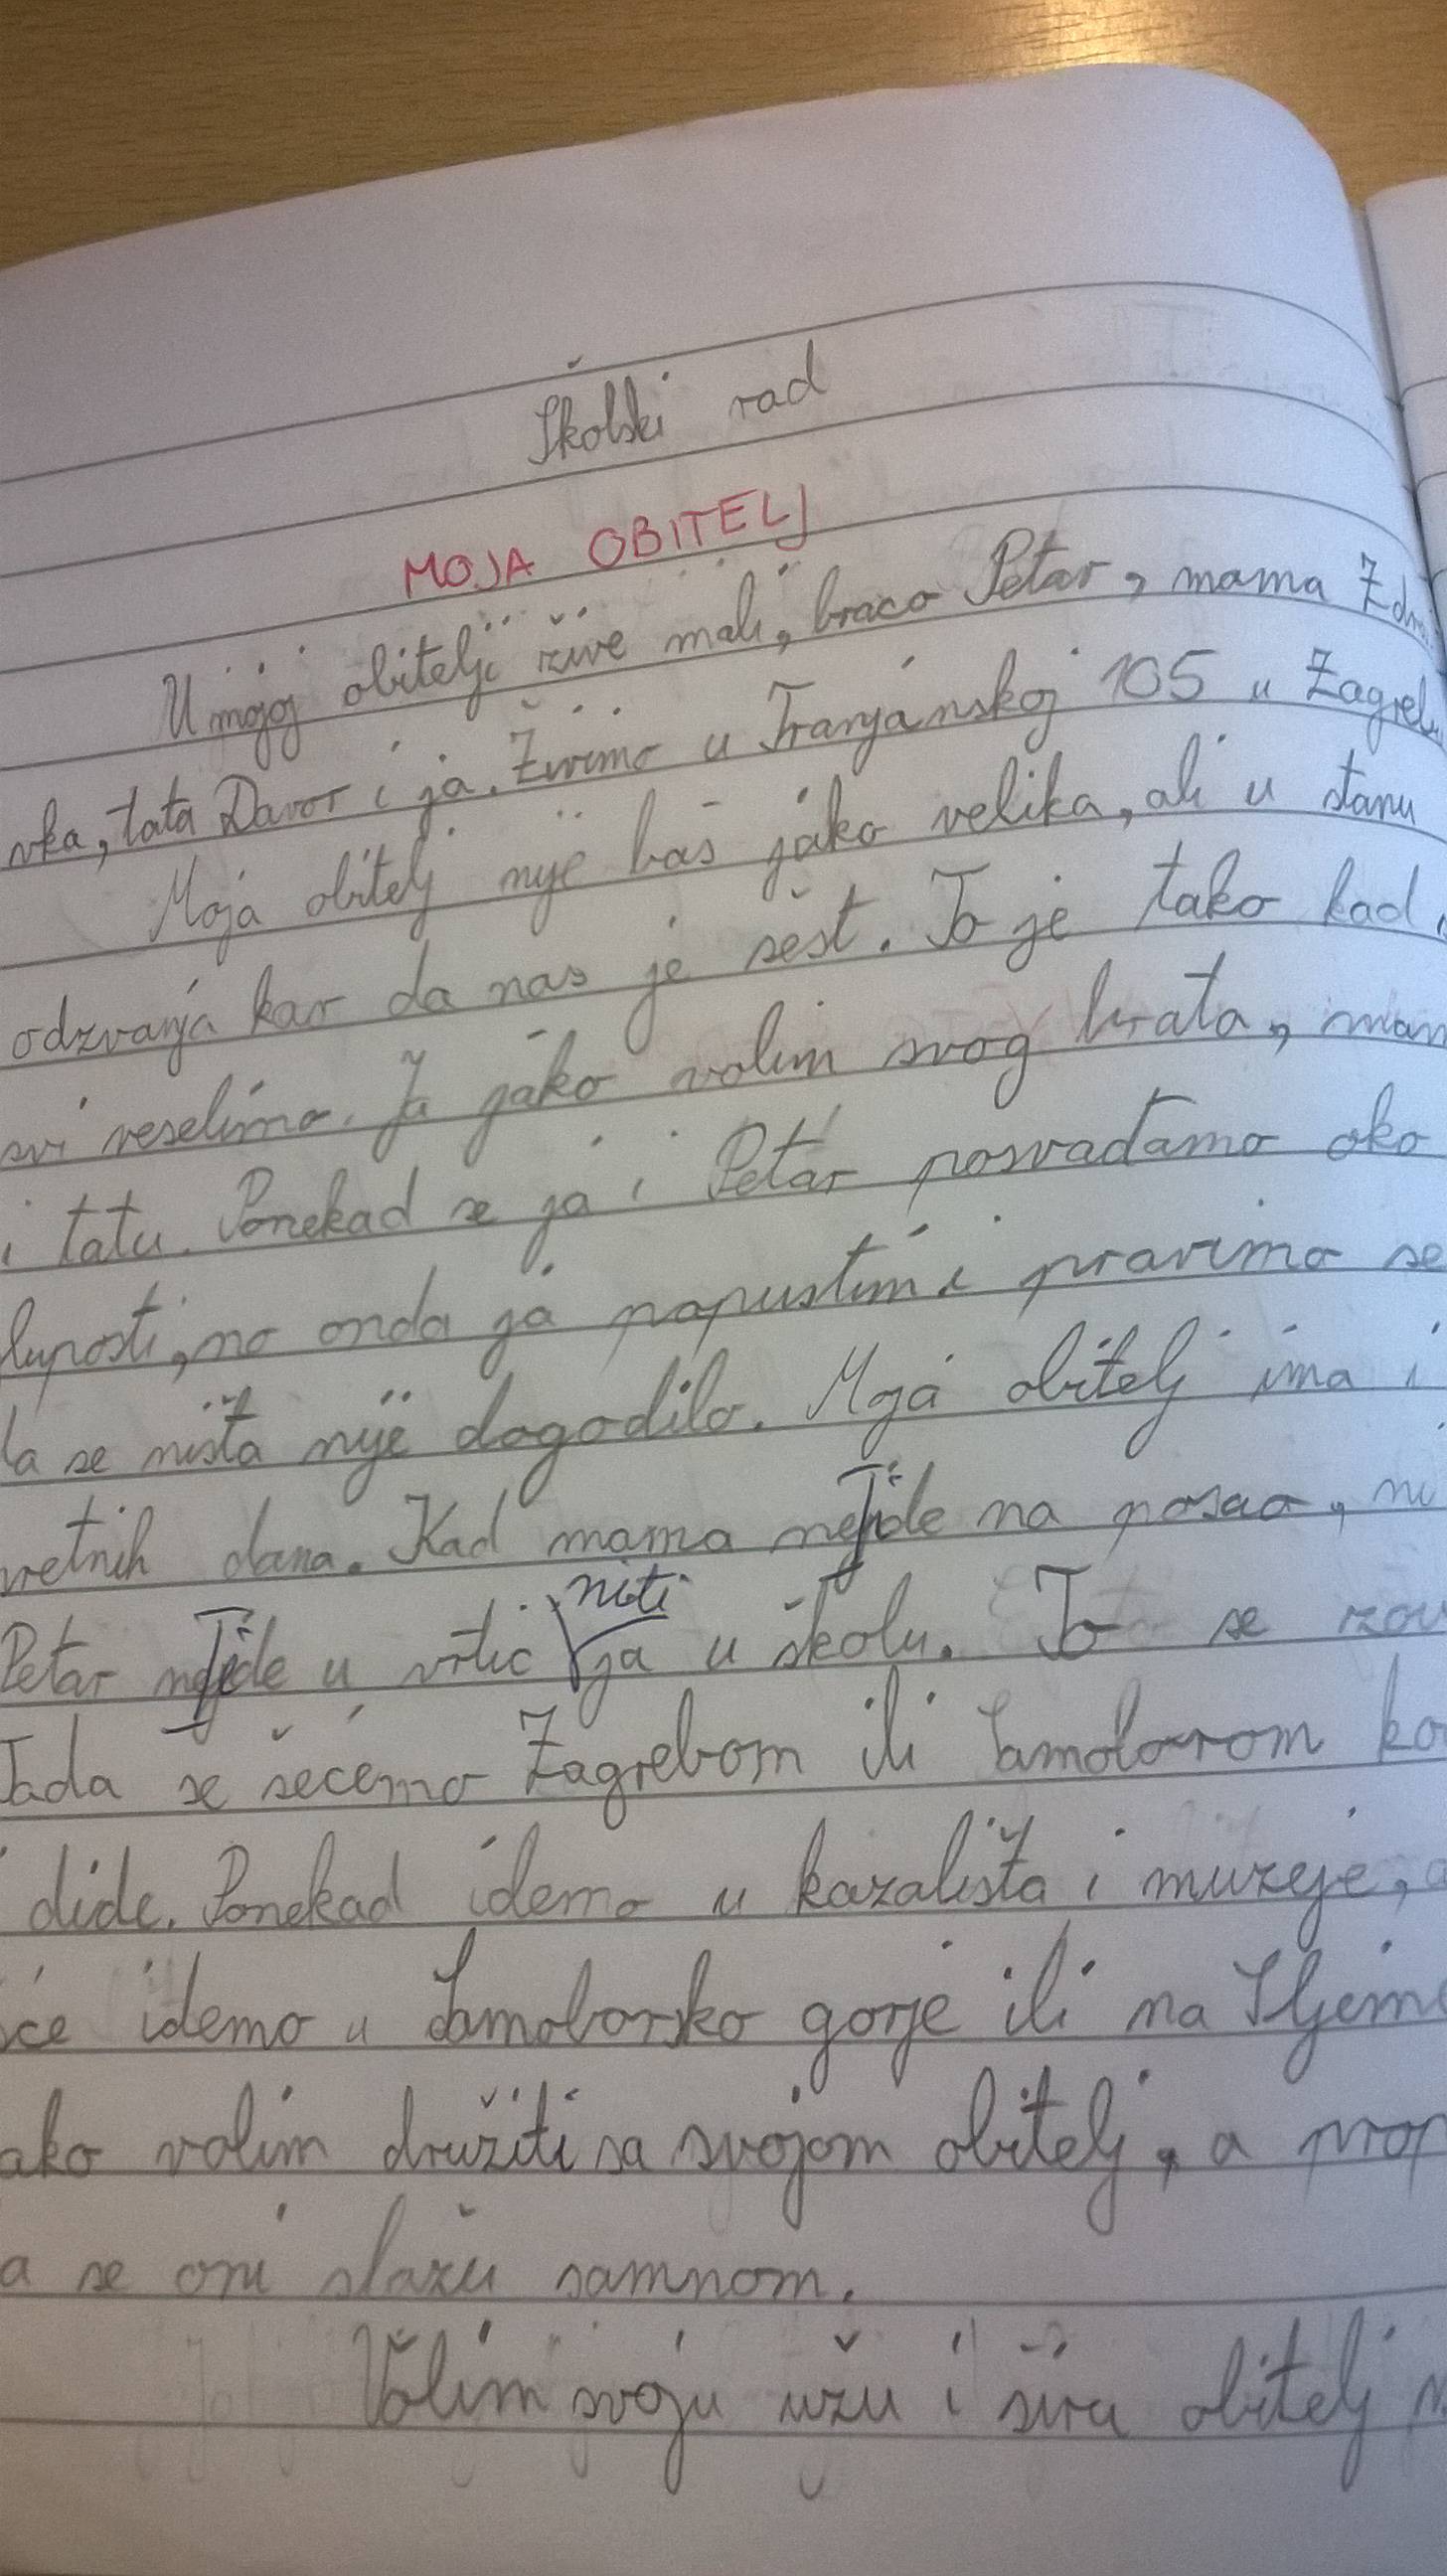 Školski rad
MOJA OBITELJ
U mojoj obitelji žive mali, braco Petar, mama Zdra
vka, tata Davor i ja. Živimo u Tranjanskoj 105 u Zagreb
Moja obitelj nije baš jako velika, ali u stanu
odzvanja kar da nas je šest. To je tako kad
svi veselimo. Ja jako volim svog brata, mam
i tatu. Ponekad se ja i Petar posvađamo oko
luposti, no onda ja papustim i pravimo se
da se ništa nije dogodilo. Moja obitelj ima i
retnih dana. Kad mama ne ide na posao, ni
Petar ne ide u vrtić niti ja u školu. To se zov
Tada se šećemo Zagrebom ili Samoborom ko
i dide. Ponekad idemo u kazališta i muzeje, a
šće idemo u Samoborsko gorje ili na Sljeme
ako volim družiti sa svojom obitelj, a prop
a se oni slažu samnom.
Volim svoju užu i širu obitelj